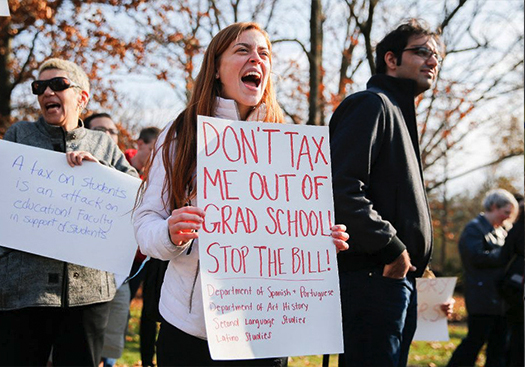 A tax on students
is an attack on
education! Faculty
in support of students.
DON'T TAX
ME OUT OF
GRAD SCHOOL!
STOP THE BILL!
Department of Spanish + Portuguese
Department of Art History
Second Language Studies
Latino Studies